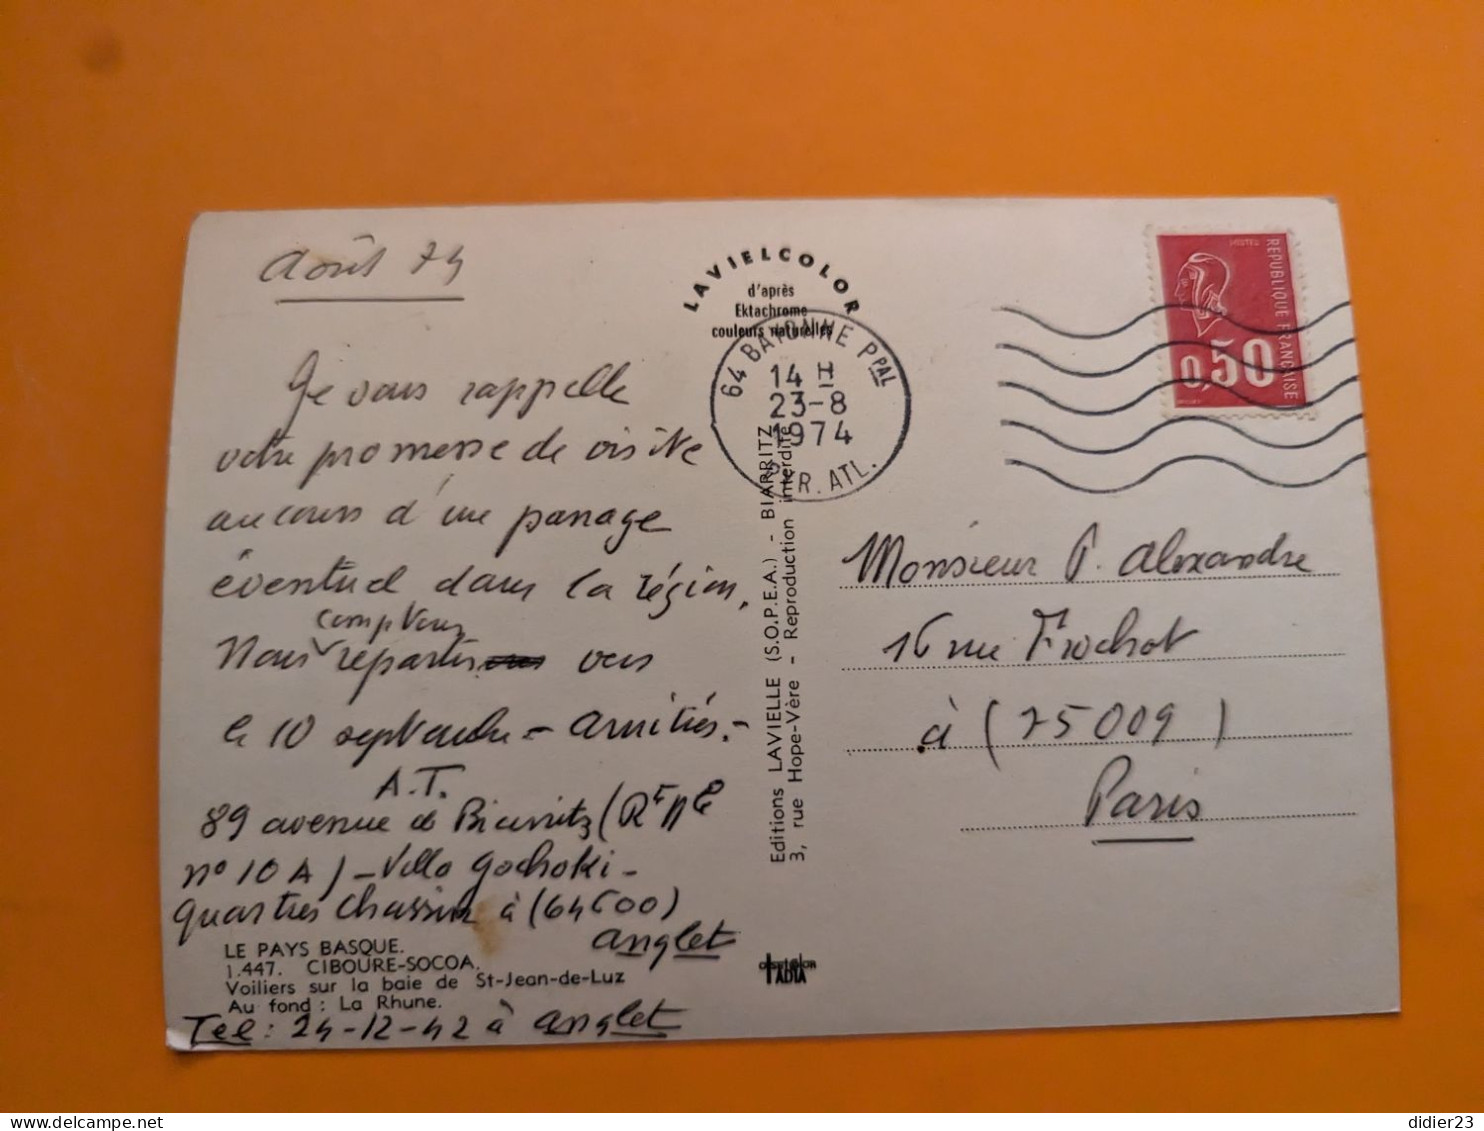 Août 74
Je vous rappelle
votre promesse de visite
au cours d'une passage
éventuel dans la région,
comptons
Nous repartir vers
le 10 septembre - Amitiés.-
A.T.
89 avenue de Biarritz (Rce
n° 10 A) - Villa Gochoki -
Quartier Chassin à (64600)
Anglet
LE PAYS BASQUE.
1.447. CIBOURE-SOCOA.
Voiliers sur la baie de St-Jean-de-Luz
Au fond : La Rhune.
Tel : 24-12-42 à Anglet
LAVIELCOLOR
d'après
Ektachrome
couleurs naturelles
64 BAYONNE PPAL
14 H
23-8
1974
PYR. ATL.
Editions LAVIELLE (S.O.P.E.A.) - BIARRITZ
3, rue Hope-Vère - Reproduction interdite
IADIA
POSTES
REPUBLIQUE FRANÇAISE
0,50
Monsieur P. Alexandre
16 rue Frochot
à (75009)
Paris
didier23